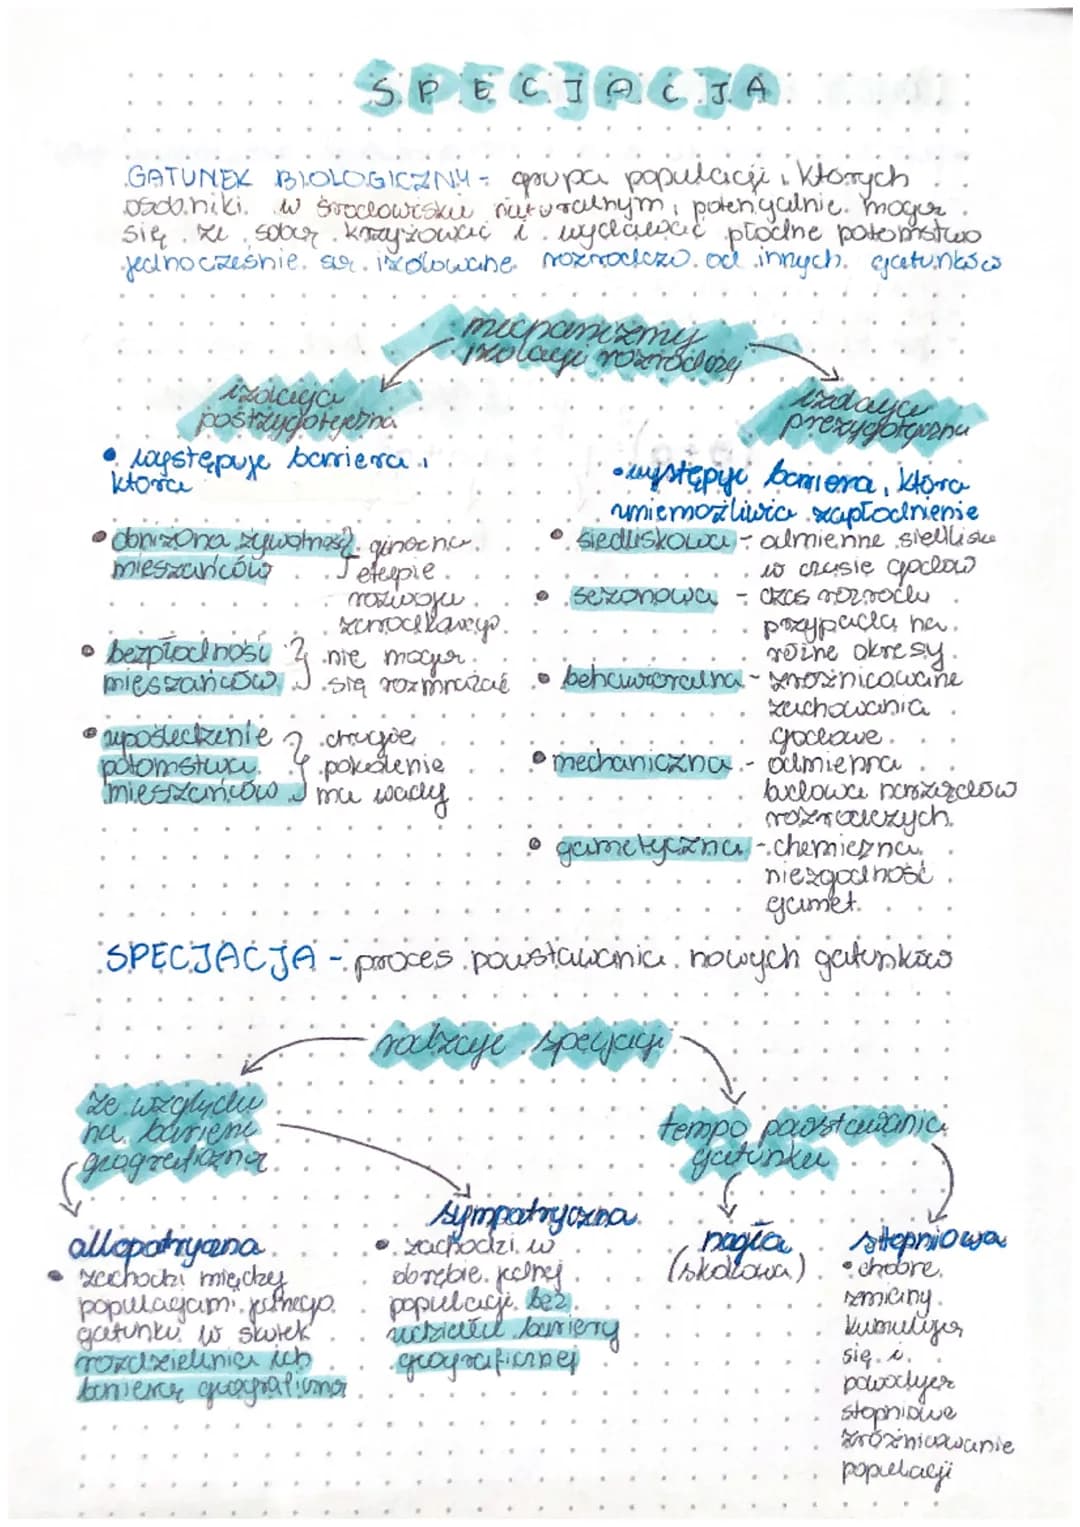 SPECJACJA
GATUNEK BIOLOGICZNY - grupa populacji, których
osobniki w środowisku naturalnym, potencjalnie mogą
się ze sobą krzyżować i wydawać płodne potomstwo
jednocześnie są izolowane rozrodczo od innych gatunków
mechanizmy
izolacji rozrodczej
izolacja
postzygotyczna
• występuje bariera,
która
• obniżona żywotność } giną na
mieszańców etapie
rozwoju
zarodkowego
• bezpłodność } nie mogą
mieszańców się rozmnażać
• upośledzenie } drugie
potomstwa pokolenie
mieszańców ma wady
izolacja
prezygotyczna
• występuje bariera, która
uniemożliwia zapłodnienie
• siedliskowa - odmienne siedliska
w czasie godów
• sezonowa - czas rozrodu
przypada na
różne okresy
• behawioralna - zróżnicowane
zachowania
godowe
• mechaniczna - odmienna
budowa narządów
rozrodczych
• gametyczna - chemiczna
niezgodność
gamet
SPECJACJA - proces powstawania nowych gatunków
rodzaje specjacji
ze względu
na barierę
geograficzną
allopatryczna
• zachodzi między
populacjami jednego
gatunku w skutek
rozdzielenia ich
barierą geograficzną
sympatryczna
• zachodzi w
obrębie jednej
populacji bez
udziału bariery
geograficznej
tempo powstawania
gatunku
nagła
(skokowa)
stopniowa
• drobne
zmiany
kumulują
się i
powodują
stopniowe
zróżnicowanie
populacji